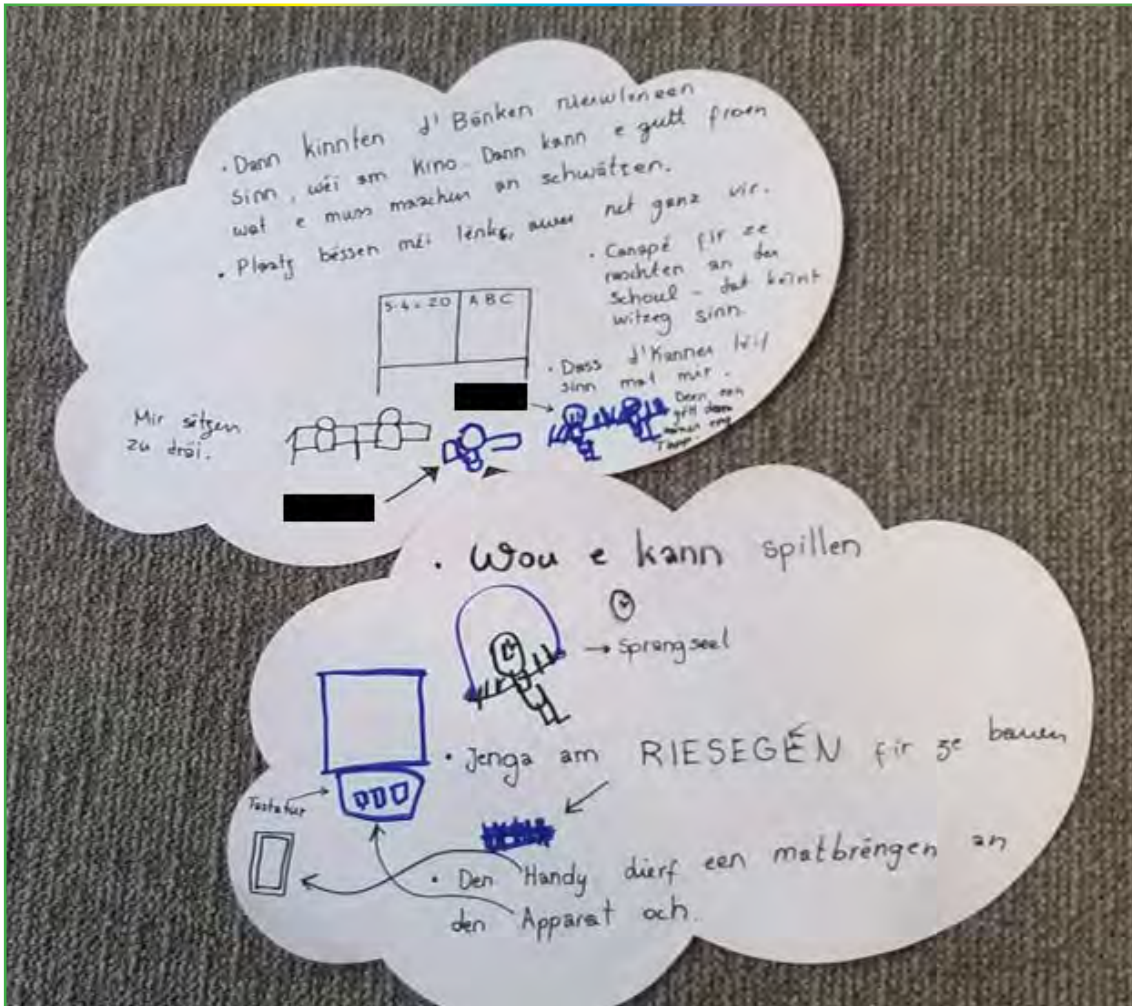 · Dann kinnten d'Bänken niewteneen
sinn, wéi am Kino. Dann kann e gutt froen
wat e muss maachen an schwätzen.
· Plaatz bëssen méi lénks, awer net ganz vir.
· Canapé fir ze
raschten an der
Schoul - dat kéint
witzeg sinn.
5·4=20 ABC
· Dass d'Kanner léif
sinn mat mir.
Deen een
gëtt deem
eng
Mir sëtzen
zu dräi.
· Wou e kann spillen
→ Sprangseel
· Jenga am RIESEGEN fir ze bauen
Tastatur
· Den Handy dierf een matbréngen an
den Apparat och.